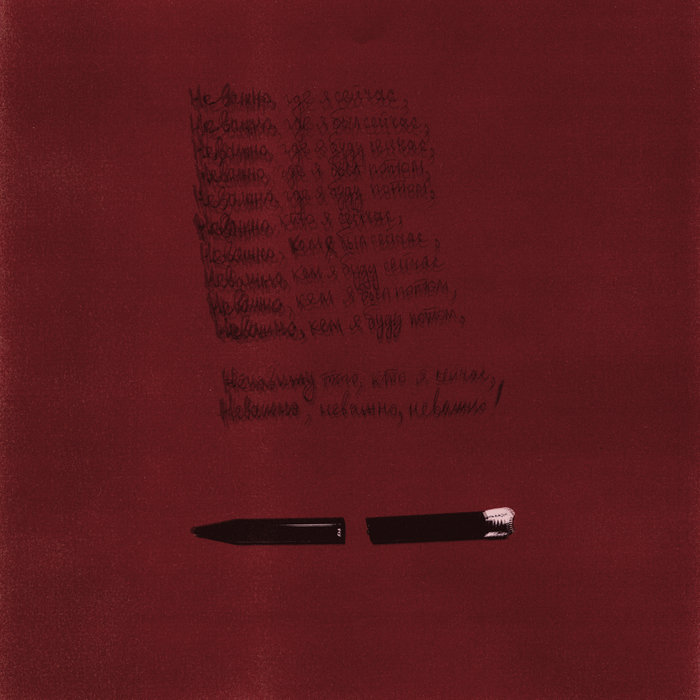 Не важно, где я сейчас,
Неважно, где я был сейчас,
Неважно, где я буду сейчас,
Неважно, где я был потом,
Неважно, где я буду потом,
Неважно, кто я сейчас,
Неважно, кем я был сейчас,
Неважно, кем я буду сейчас
Неважно, кем я был потом,
Неважно, кем я буду потом,
Ненавижу того, кто я сейчас,
Неважно, неважно, неважно!